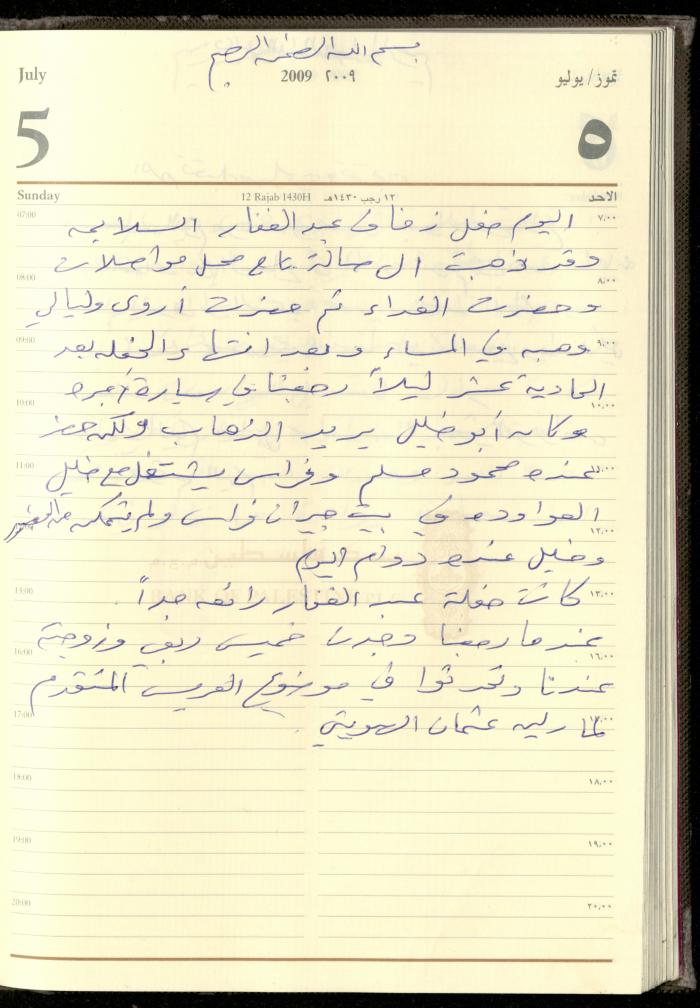 بسم الله الرحمن الرحيم
July 2009 ٢٠٠٩ تموز/يوليو
5 ٥
Sunday 12 Rajab 1430H ١٢ رجب ١٤٣٠هـ الاحد
07:00 ٧,٠٠
اليوم حفل زفاف عبد الغفار السلايمه
وقد ذهبت الى صالة تاج محل مواصلات
08:00 ٨,٠٠
وحضرت الغداء ثم حضرت أروى وليالي
09:00 ٩,٠٠
وهبه في المساء وبعد انتهاء الحفله بعد
الحادية عشر ليلاً رجعنا في سيارة أجره
10:00 ١٠,٠٠
وكان أبو خليل يريد الذهاب ولكن حضر
11:00 ١١,٠٠
عنده محمود مسلم وفراس يشتغل مع خليل
العواوده في بيت جيران فراس ولم يتمكن من الحضور
١٢,٠٠
وخليل عنده دوام اليوم
15:00 ١٣,٠٠
كانت حفلة عبد الغفار رائعه جداً .
عندما رجعنا وجدت خميس ربعي وزوجته
16:00 ١٦,٠٠
عندنا وتحدثوا في موضوع العريس المتقدم
17:00
لمارلين عثمان الهويتي .
18:00 ١٨,٠٠
19:00 ١٩,٠٠
20:00 ٢٠,٠٠